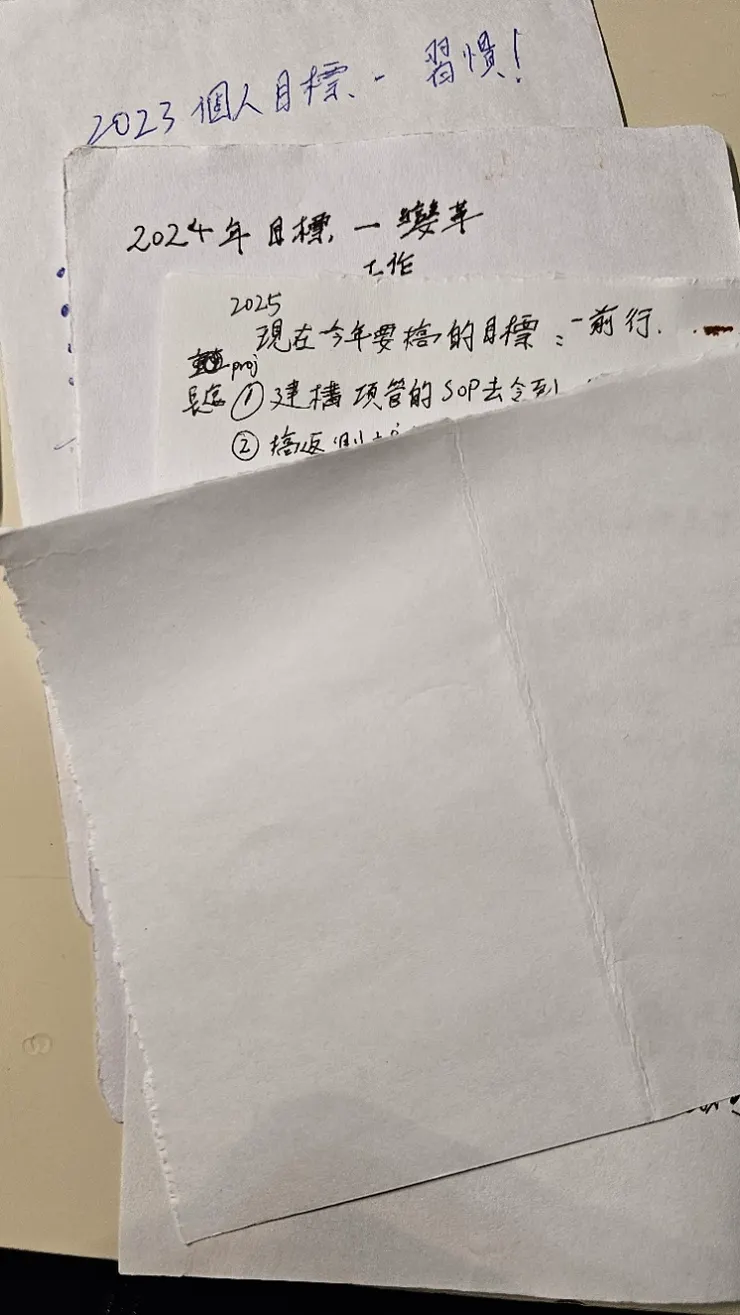 2023 個人目標 - 習慣!
2024年目標 - 變革
工作
2025
現在今年要搞的目標：- 前行.
proj
① 建構 項管的SOP去令到
② 搞返